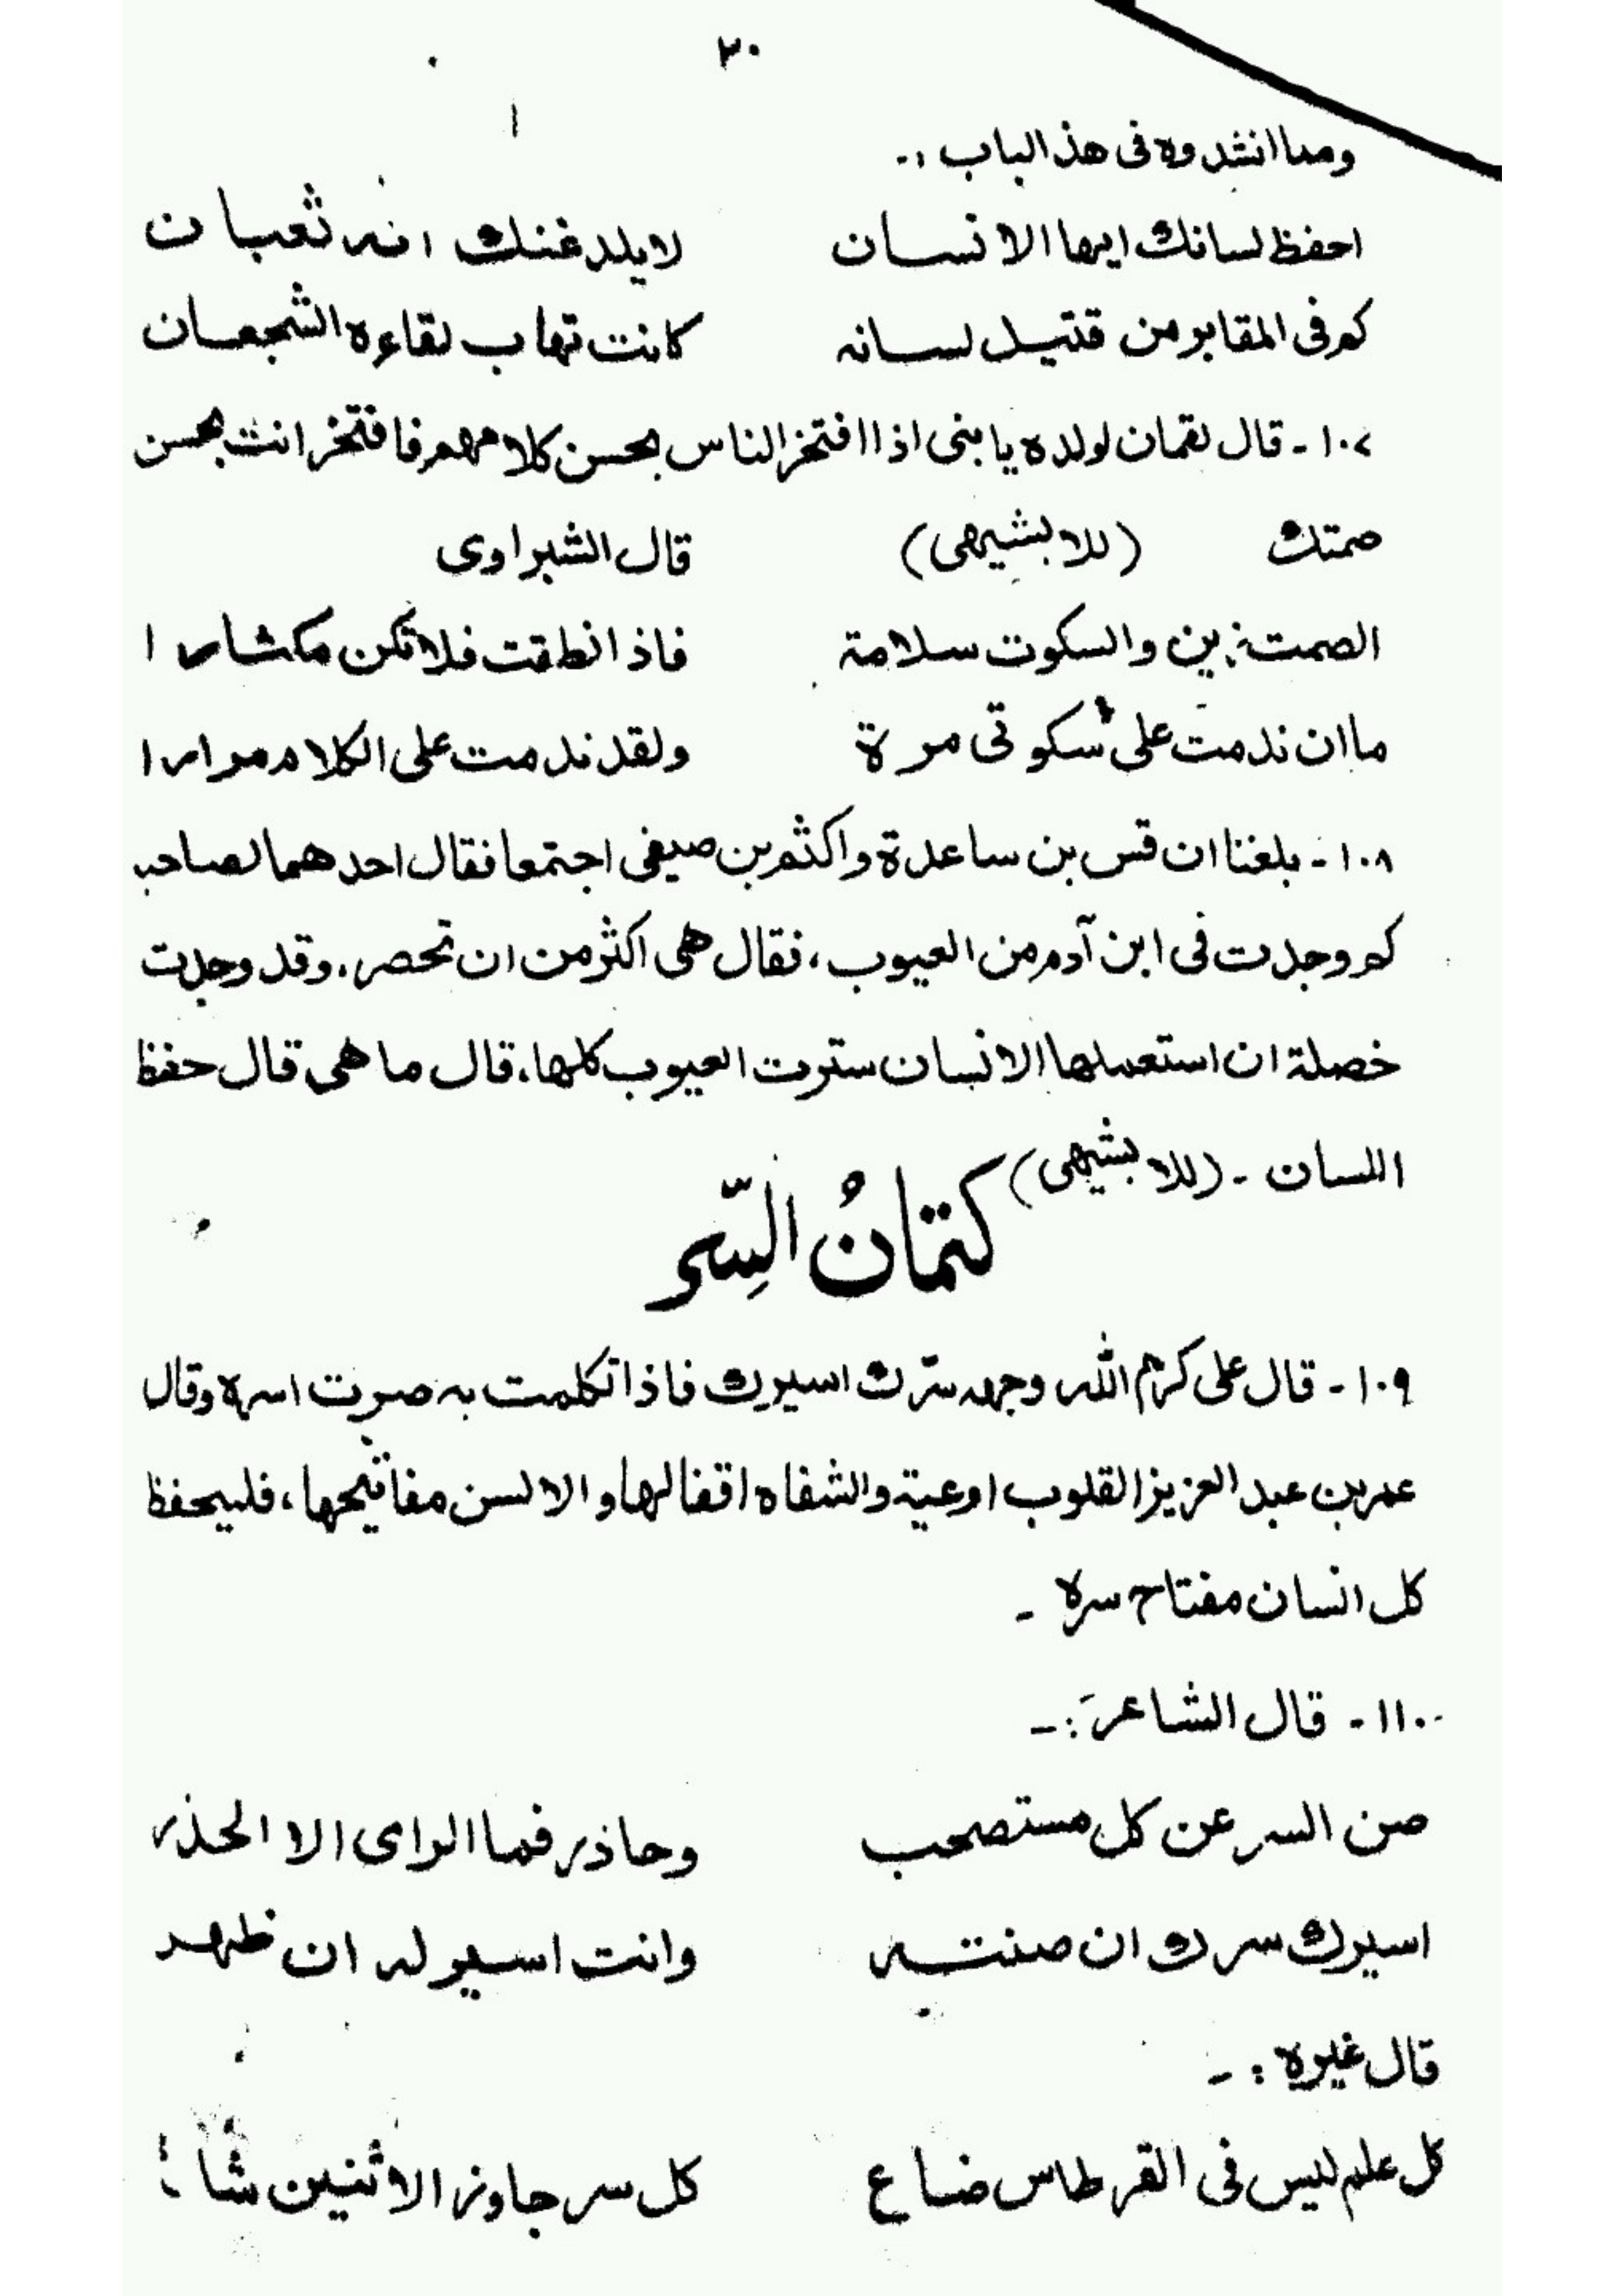 ٣٠
ومما انشدوه فى هذ الباب :-
احفظ لسانك ايها الانسان لا يلدغنك انه ثعبان
كم فى المقابر من قتيل لسانه كانت تهاب لقاءه الشجعان
١٠٧ - قال لقمان لولده يا بنى اذا افتخر الناس بحسن كلامهم فافتخر انت بحسن
صمتك (للابشيهى) قال الشبراوى
الصمت زين والسكوت سلامة فاذا نطقت فلا تكن مكثارا
ما ان ندمت على سكوتى مرة ولقد ندمت على الكلام مرارا
١٠٨ - بلغنا ان قس بن ساعدة واكثم بن صيفى اجتمعا فقال احدهما لصاحبه
كم وجدت فى ابن آدم من العيوب، فقال هى اكثر من ان تحصر، وقد وجدت
خصلة ان استعملها الانسان سترت العيوب كلها، قال ما هى قال حفظ
اللسان - (للابشيهى)
كتمانُ السِّر
١٠٩ - قال على كرم الله وجهه سرّك اسيرك فاذا تكلمت به صرت اسره وقال
عمر بن عبد العزيز القلوب اوعية والشفاه اقفالها والالسن مفاتيحها، فليحفظ
كل انسان مفتاح سره -
١١٠ - قال الشاعر :-
صن السر عن كل مستصحب وحاذر فما الراى الا الحذر
اسيرك سرك ان صنته وانت اسير له ان ظهر
قال غيره :-
كل علم ليس فى القرطاس ضاع كل سر جاوز الاثنين شاع